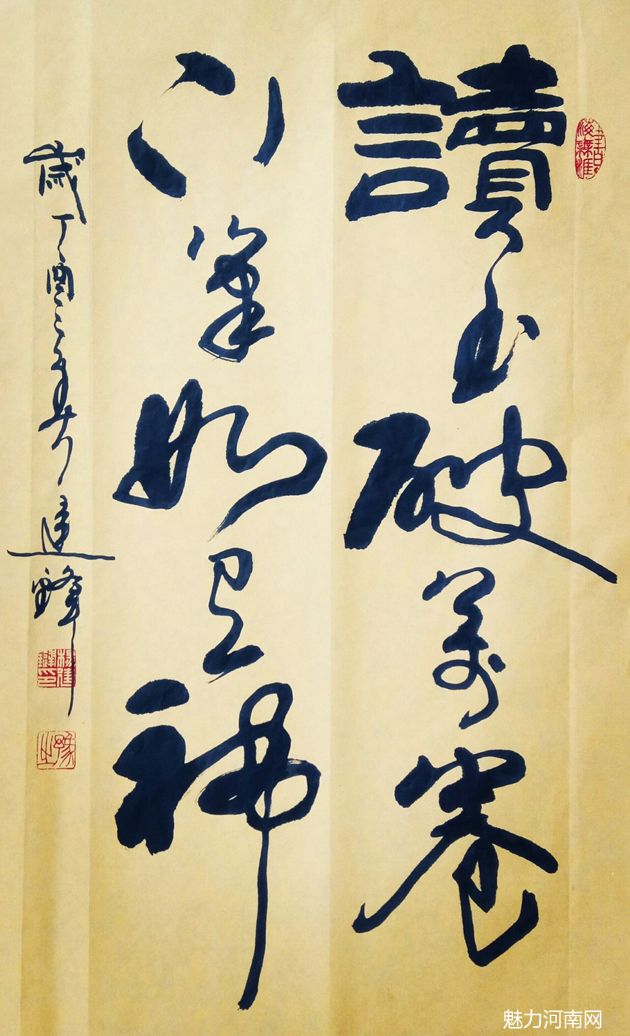 讀書破萬卷
下筆如有神
歲丁酉之春月達鋒
魅力河南网